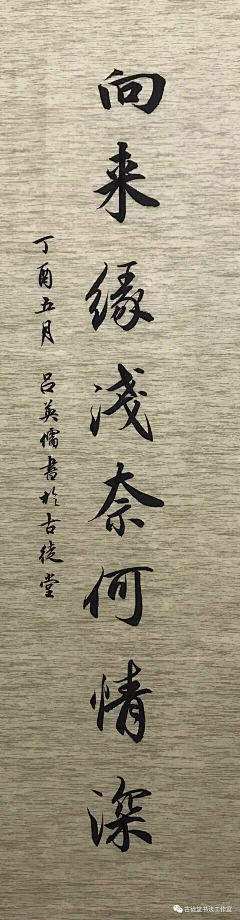 向来缘淺奈何情深
丁酉五月 吕英儒書於古徒堂
古徒堂书法工作室